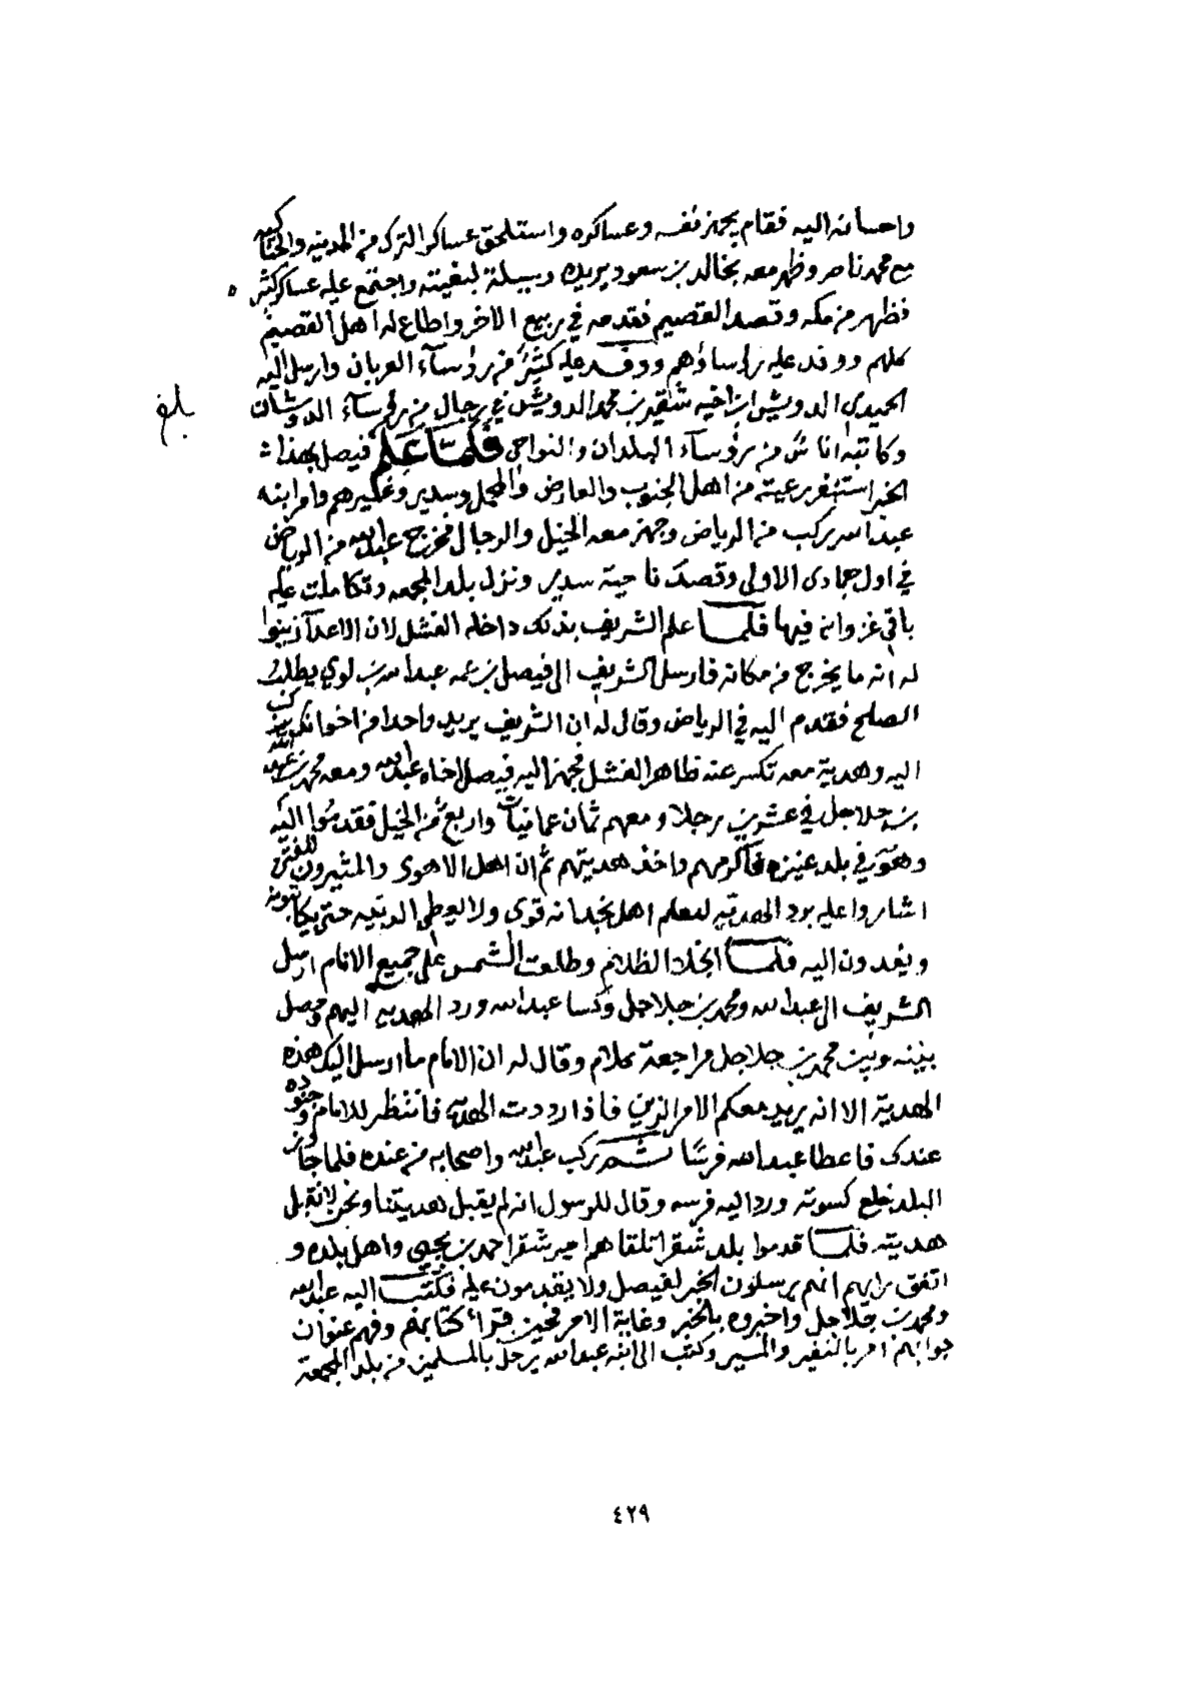 واحسانه اليه فقام يجهز نفسه وعساكره واستلحق عساكر الترك من المدينه والحناكيه
مع محمد ناصر وظهر معه بخالد بن سعود يريده وسيلة لبغيته واجتمع عليه عساكر كثيره
فظهر من مكه وقصد القصيم فقدمه في ربيع الاخر واطاع له اهل القصيم
كلهم ووفد عليه رؤساؤهم ووفد عليه كثير من رؤساء العربان وارسل اليه
الحميدي الدويش ابن اخيه شقير بن محمد الدويش في رجال من رؤساء الدوشان
بلغ
وكاتبه اناس من رؤساء البلدان والنواحي فلما علم فيصل بهذا
الخبر استنفر رعيته من اهل الجنوب والعارض والمحمل وسدير وغيرهم وامر ابنه
عبدالله يركب من الرياض وجهز معه الخيل والرجال فخرج عبدالله من الرياض
في اول جمادى الاولى وقصد ناحية سدير ونزل بلد المجمعه وتكاملت عليه
باقي غزوانه فيها فلما علم الشريف بذلك داخله الفشل لان الاعدآ زينوا
له انه ما يخرج من مكانه فارسل الشريف الى فيصل بن عمه عبدالله بن لوي يطلب
الصلح فقدم اليه في الرياض وقال له ان الشريف يريد واحدا من اخوانك يركب
اليه وهدية معه تكسر عنه ظاهر الفشل فجهز اليه فيصل اخاه عبدالله ومعه محمد بن عبدالله
بن جلاجل في عشرين رجلا ومعهم ثمان عمانيات واربع من الخيل فقدموا اليه
وهو في بلد عنيزه فاكرمهم واخذ هديتهم ثم ان اهل الاهوى والمثيرون للفتن
اشاروا عليه برد الهديه ليعلم اهل نجد انه قوى ولا يعطي الدنيه حتى يكاتبونه
ويفدون اليه فلما انجلا الظلام وطلعت الشمس على جميع الانام ارسل
الشريف الى عبدالله ومحمد بن جلاجل وكسا عبدالله ورد الهديه اليهم وحصل
بينه وبين محمد بن جلاجل مراجعة كلام وقال له ان الامام ما ارسل اليك هذه
الهدية الا انه يريد معكم الامر الزين فاذا رددت الهديه فانتظر للامام وجنوده
عندك فاعطا عبدالله فرسًا ثم ركب عبدالله واصحابه من عنده فلما جاوز
البلد خلع كسوته ورد اليه فرسه وقال للرسول انه لم يقبل هديتنا ونحن لا نقبل
هديته فلما قدموا بلد شقرا تلقاهم امير شقرا حمد بن يحيى واهل بلده و
اتفق رايهم انهم يرسلون الخبر لفيصل ولا يقدمون عليه فكتب اليه عبدالله
ومحمد بن جلاجل واخبروه بالخبر وغاية الامر فحين قرأ كتابهم وفهم عنوان
جوابهم امر بالنفير والمسير وكتب الى ابنه عبدالله يرحل بالمسلمين من بلد المجمعة
٤٢٩